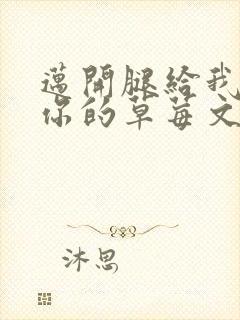 邁開腿給我
你的草莓文
沐思